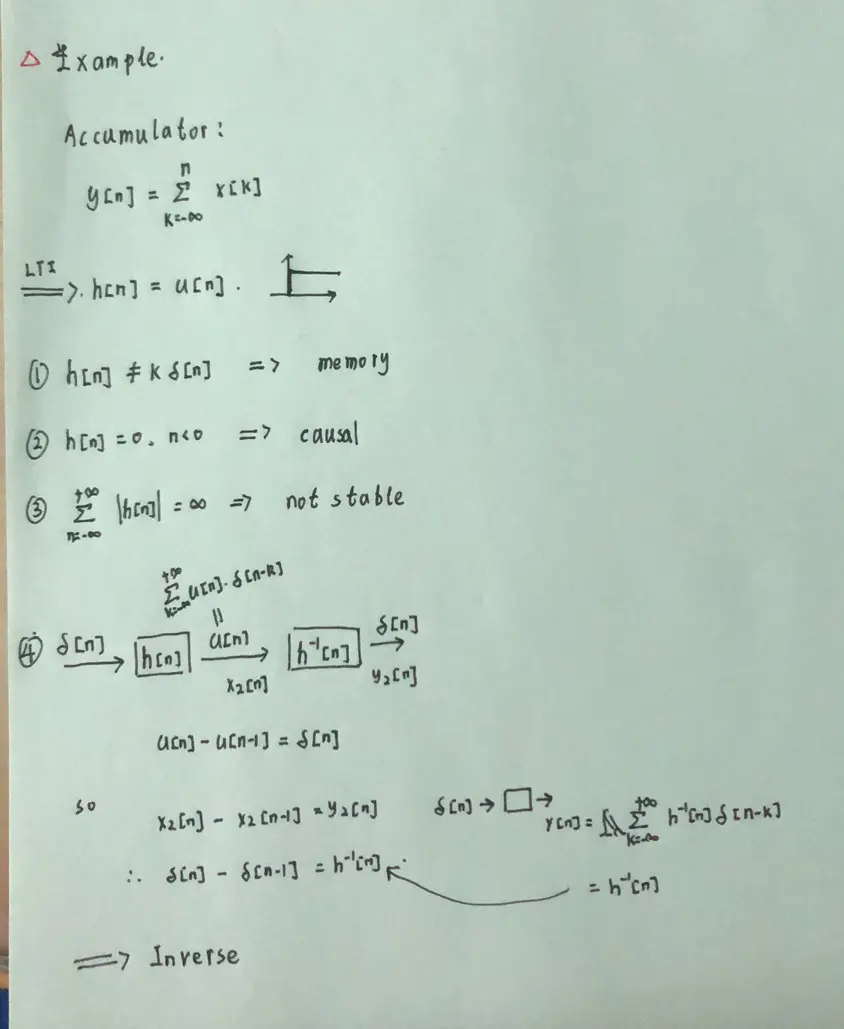 △ Example.
Accumulator:
y[n] = Σ_{k=-∞}^{n} x[k]
LTI ⟹ h[n] = u[n].
① h[n] ≠ k δ[n] => memory
② h[n] = 0, n<0 => causal
③ Σ_{n=-∞}^{+∞} |h[n]| = ∞ => not stable
Σ_{k=-∞}^{+∞} u[n]·δ[n-k]
||
④ δ[n] → h[n] u[n] → h⁻¹[n] δ[n] →
x₂[n] y₂[n]
u[n] - u[n-1] = δ[n]
so x₂[n] - x₂[n-1] = y₂[n] δ[n] → □ → Y[n] = Σ_{k=-∞}^{+∞} h⁻¹[n] δ[n-k]
∴ δ[n] - δ[n-1] = h⁻¹[n] = h⁻¹[n]
⟹ Inverse